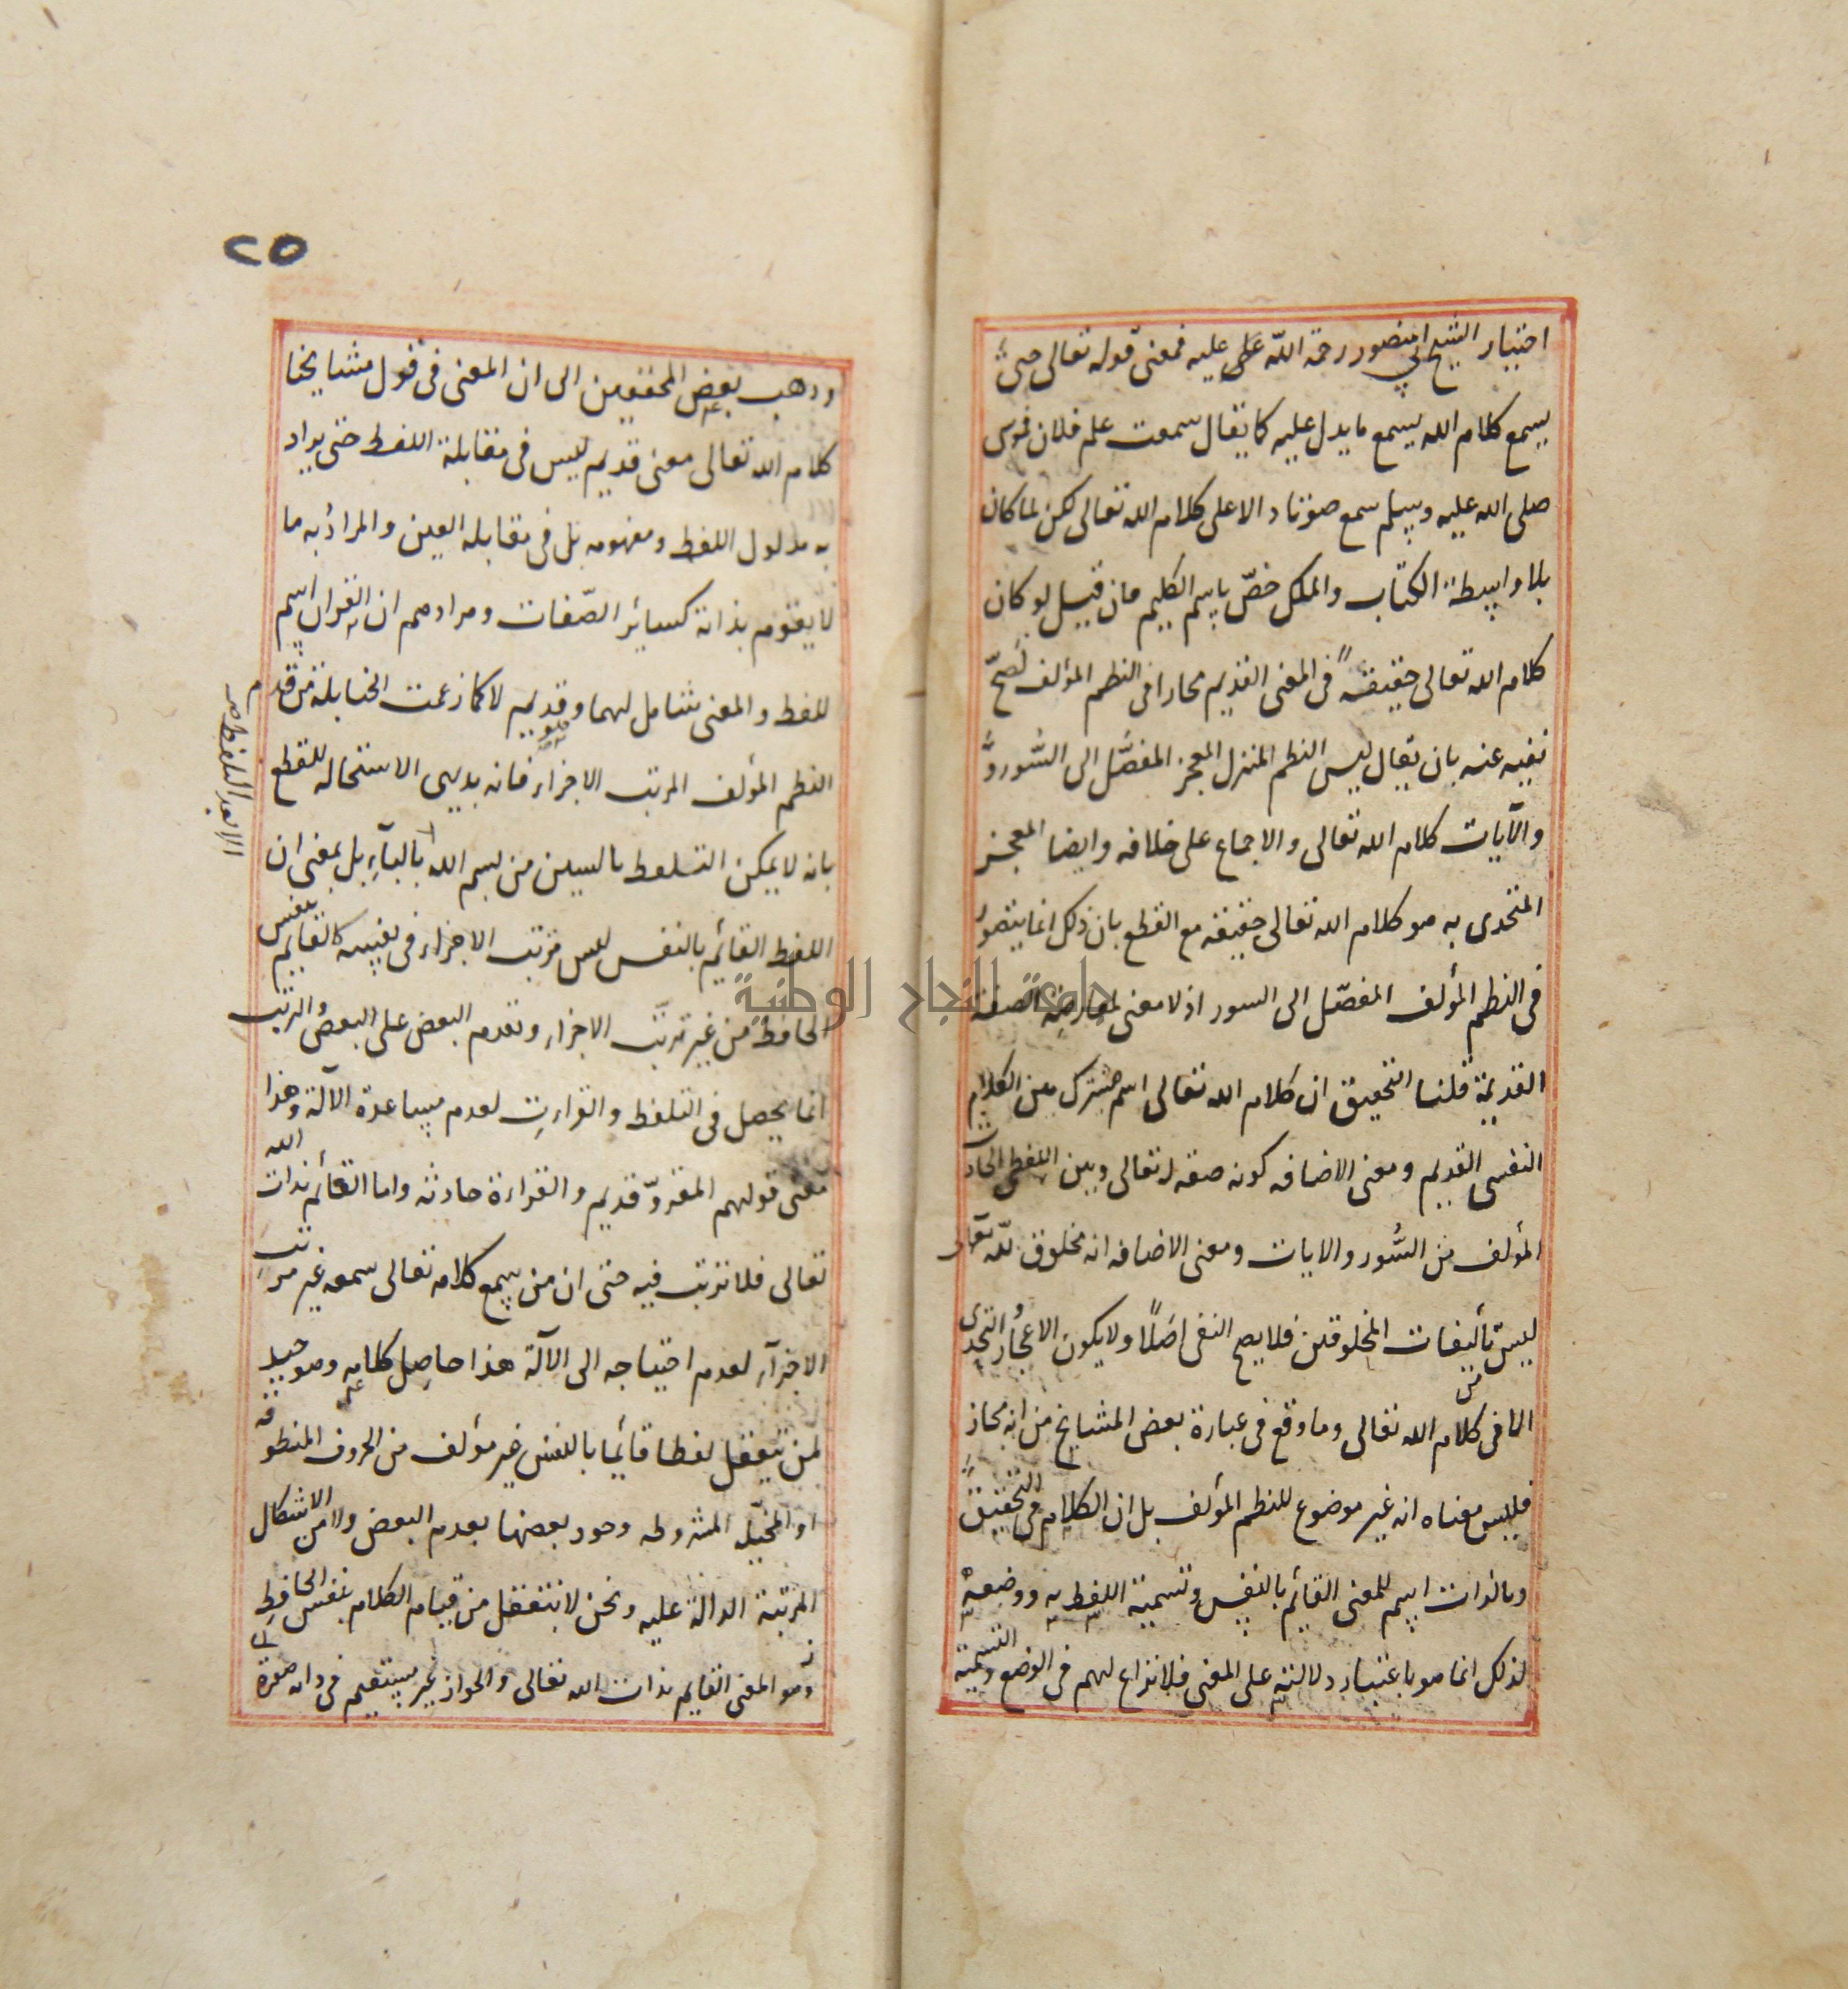 اختيار الشيخ ابي منصور رحمة الله عليه فمعنى قوله تعالى حتى
يسمع كلام الله يسمع ما يدل عليه كما يقال سمعت علم فلان فموسى
صلى الله عليه وسلم سمع صوتا دالا على كلام الله تعالى لكن لما كان
بلا واسطة الكتاب والملك خصّ باسم الكليم فان قيل لو كان
كلام الله تعالى حقيقةً في المعنى القديم مجازا في النظم المؤلف لصحّ
نفيه عنه بان يقال ليس النظم المنزل المعجز المفصّل الى السُّور و
والآيات كلام الله تعالى والاجماع على خلافه وايضا المعجز
المتحدى به هو كلام الله تعالى حقيقة مع القطع بان ذلك انما يتصور
في النظم المؤلف المفصّل الى السور اذ لا معنى لمعارضة الصفة
القديمة قلنا التحقيق ان كلام الله تعالى اسم مشترك بين الكلام
النفسي القديم ومعنى الاضافه كونه صفة له تعالى وبين اللفظي الحادث
المؤلف من السُّور والايات ومعنى الاضافه انه مخلوق للّه تعالى
ليس من تأليفات المخلوقين فلا يصح النفى اصَلاً ولا يكون الاعجاز والتحدى
الا في كلام الله تعالى وما وقع في عبارة بعض المشايخ من انه مجاز
فليس معناه انه غير موضوع للنظم المؤلف بل ان الكلام في التحقيق
وبالذات اسم للمعنى القائم بالنفس وتسمية اللفظ به ووضعه
لذلك انما هو باعتبار دلالته على المعنى فلا نزاع لهم في الوضع والتسمية
٢٥
وذهب بعض المحققين الى ان المعنى في قول مشايخنا
كلام الله تعالى معنى قديم ليس في مقابلة اللفظ حتى يراد
به مدلول اللفظ ومفهومه بل في مقابله العين والمراد به ما
لا يقوم بذاته كسائر الصّفات ومرادهم ان القران اسم
للفظ والمعنى شامل لهما وهو قديم لا كما زعمت الحنابلة من قدم
النظم المؤلف المرتب الاجزاء فانه بديهى الاستحاله للقطع
بانه لا يمكن التلفظ بالسين من بسم الله بالبآءِ بل بمعنى ان
الا بعد التلفظ
اللفظ القائم بالنفس ليس مرتب الاجزاء في نفسه كالقايم بنفس
الحافظ من غير ترتّب الاجزاء وتقدم البعض على البعض والترتب
انما يحصل في التلفظ والقراءت لعدم مساعدة الآلة وهذا
معنى قولهم المقروّ قديم والقراءة حادثه واما القائم بذات الله
تعالى فلا ترتب فيه حتى ان من سمع كلامه تعالى سمعه غير مرتب
الاجزآء لعدم احتياجه الى الآلة هذا حاصِل كلامه وهو جيد
لمن يتعقل لفظا قائما بالنفس غير مؤلف من الحروف المنطوقة
او المخيّلة المشروطه وجود بعضها بعدم البعض ولا من الاشكال
المرتبة الدالة عليه ونحن لا نتعقل من قيام الكلام بنفس الحافظِ